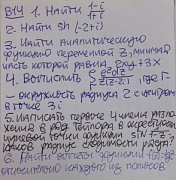 В14 1. Найти (1-i)/(1+i)
2. Найти sh(-2+i)
3. Найти аналитическую
функцию переменной z, мнимая
часть которой равна 2xy+3x
4. Вычислить ∮ где Г-
- окружность радиуса 2 с центром
в точке 3i
5. Написать первые 4 члена разло-
жения в ряд Тейлора в окрестности
точки функции sin
каков радиус сходимости ряда?
6. Найти вычеты функции f(z)=
относительно каждого из полюсов.